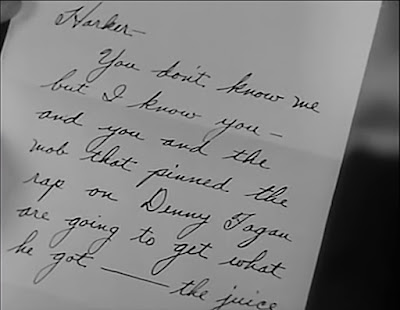 Harker—
You don't know me
but I know you —
and you and the
mob that pinned the
rap on Denny Fagan
are going to get what
he got —— the juice